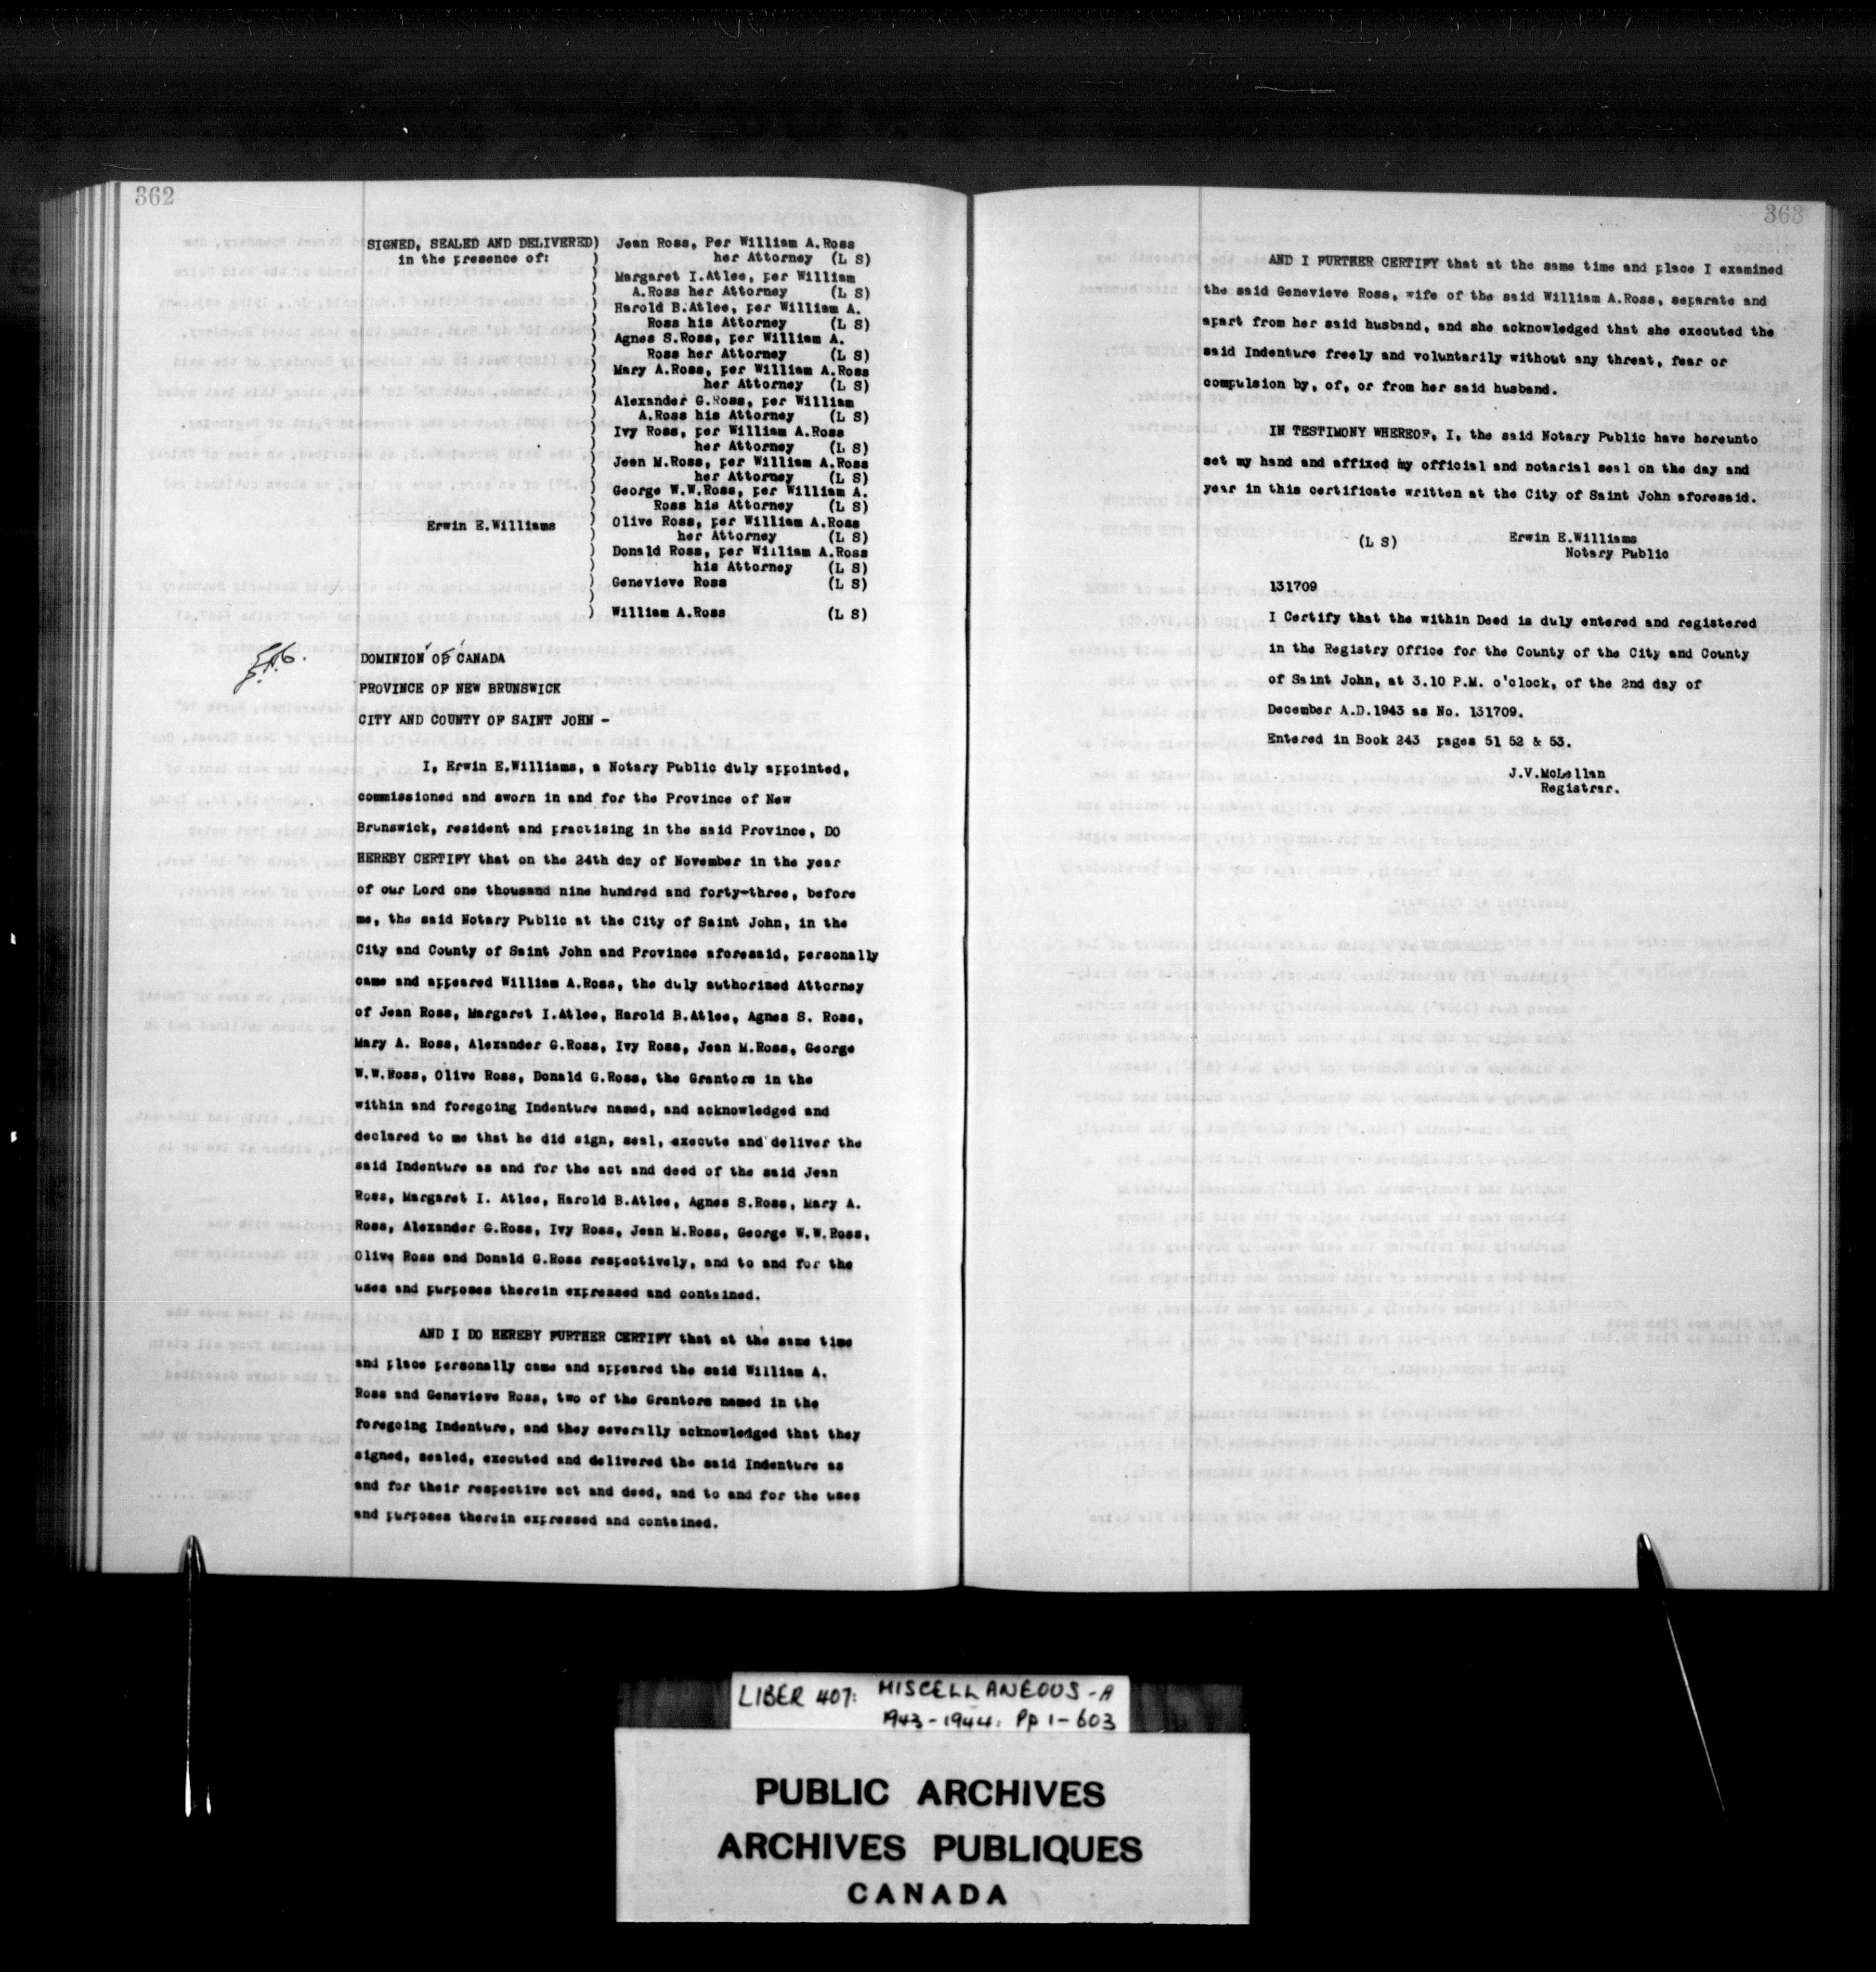 362
SIGNED, SEALED AND DELIVERED) Jean Ross, Per William A.Ross
in the presence of: ) her Attorney (L S)
) Margaret I.Atlee, per William
) A.Ross her Attorney (L S)
) Harold B.Atlee, per William A.
) Ross his Attorney (L S)
) Agnes S.Ross, per William A.
) Ross her Attorney (L S)
) Mary A.Ross, per William A.Ross
) her Attorney (L S)
) Alexander G.Ross, per William
) A.Ross his Attorney (L S)
) Ivy Ross, per William A.Ross
) her Attorney (L S)
) Jean M.Ross, per William A.Ross
) her Attorney (L S)
) George W.W.Ross, per William A.
) Ross his Attorney (L S)
Erwin E.Williams ) Olive Ross, per William A.Ross
) her Attorney (L S)
) Donald Ross, per William A.Ross
) his Attorney (L S)
) Genevieve Ross (L S)
)
) William A.Ross (L S)
DOMINION OF CANADA
PROVINCE OF NEW BRUNSWICK
CITY AND COUNTY OF SAINT JOHN -
I, Erwin E.Williams, a Notary Public duly appointed,
commissioned and sworn in and for the Province of New
Brunswick, resident and practising in the said Province, DO
HEREBY CERTIFY that on the 24th day of November in the year
of our Lord one thousand nine hundred and forty-three, before
me, the said Notary Public at the City of Saint John, in the
City and County of Saint John and Province aforesaid, personally
came and appeared William A.Ross, the duly authorized Attorney
of Jean Ross, Margaret I.Atlee, Harold B.Atlee, Agnes S. Ross,
Mary A. Ross, Alexander G.Ross, Ivy Ross, Jean M.Ross, George
W.W.Ross, Olive Ross, Donald G.Ross, the Grantors in the
within and foregoing Indenture named, and acknowledged and
declared to me that he did sign, seal, execute and deliver the
said Indenture as and for the act and deed of the said Jean
Ross, Margaret I. Atlee, Harold B.Atlee, Agnes S.Ross, Mary A.
Ross, Alexander G.Ross, Ivy Ross, Jean M.Ross, George W.W.Ross,
Olive Ross and Donald G.Ross respectively, and to and for the
uses and purposes therein expressed and contained.
AND I DO HEREBY FURTHER CERTIFY that at the same time
and place personally came and appeared the said William A.
Ross and Genevieve Ross, two of the Grantors named in the
foregoing Indenture, and they severally acknowledged that they
signed, sealed, executed and delivered the said Indenture as
and for their respective act and deed, and to and for the uses
and purposes therein expressed and contained.
363
AND I FURTHER CERTIFY that at the same time and place I examined
the said Genevieve Ross, wife of the said William A.Ross, separate and
apart from her said husband, and she acknowledged that she executed the
said Indenture freely and voluntarily without any threat, fear or
compulsion by, of, or from her said husband.
IN TESTIMONY WHEREOF, I, the said Notary Public have hereunto
set my hand and affixed my official and notarial seal on the day and
year in this certificate written at the City of Saint John aforesaid.
(L S) Erwin E.Williams
Notary Public
131709
I Certify that the within Deed is duly entered and registered
in the Registry Office for the County of the City and County
of Saint John, at 3.10 P.M. o'clock, of the 2nd day of
December A.D.1943 as No. 131709.
Entered in Book 243 pages 51 52 & 53.
J.V.McLellan
Registrar.
LIBER 407: MISCELLANEOUS-A
1943-1944. Pp 1-603
PUBLIC ARCHIVES
ARCHIVES PUBLIQUES
CANADA